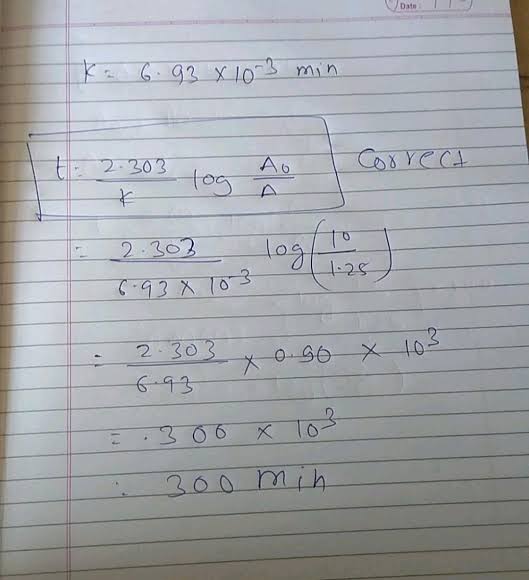 Date:
K = 6.93 × 10⁻³ min
t = 2.303/K log A₀/A Correct
= 2.303/6.93 × 10⁻³ log(10/1.25)
= 2.303/6.93 × 0.90 × 10³
= .300 × 10³
∴ 300 min